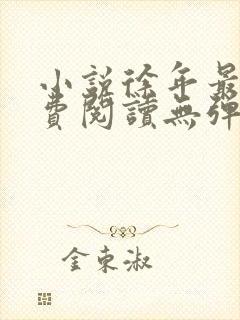 小說徐年最
費閱讀無彈
金東淑